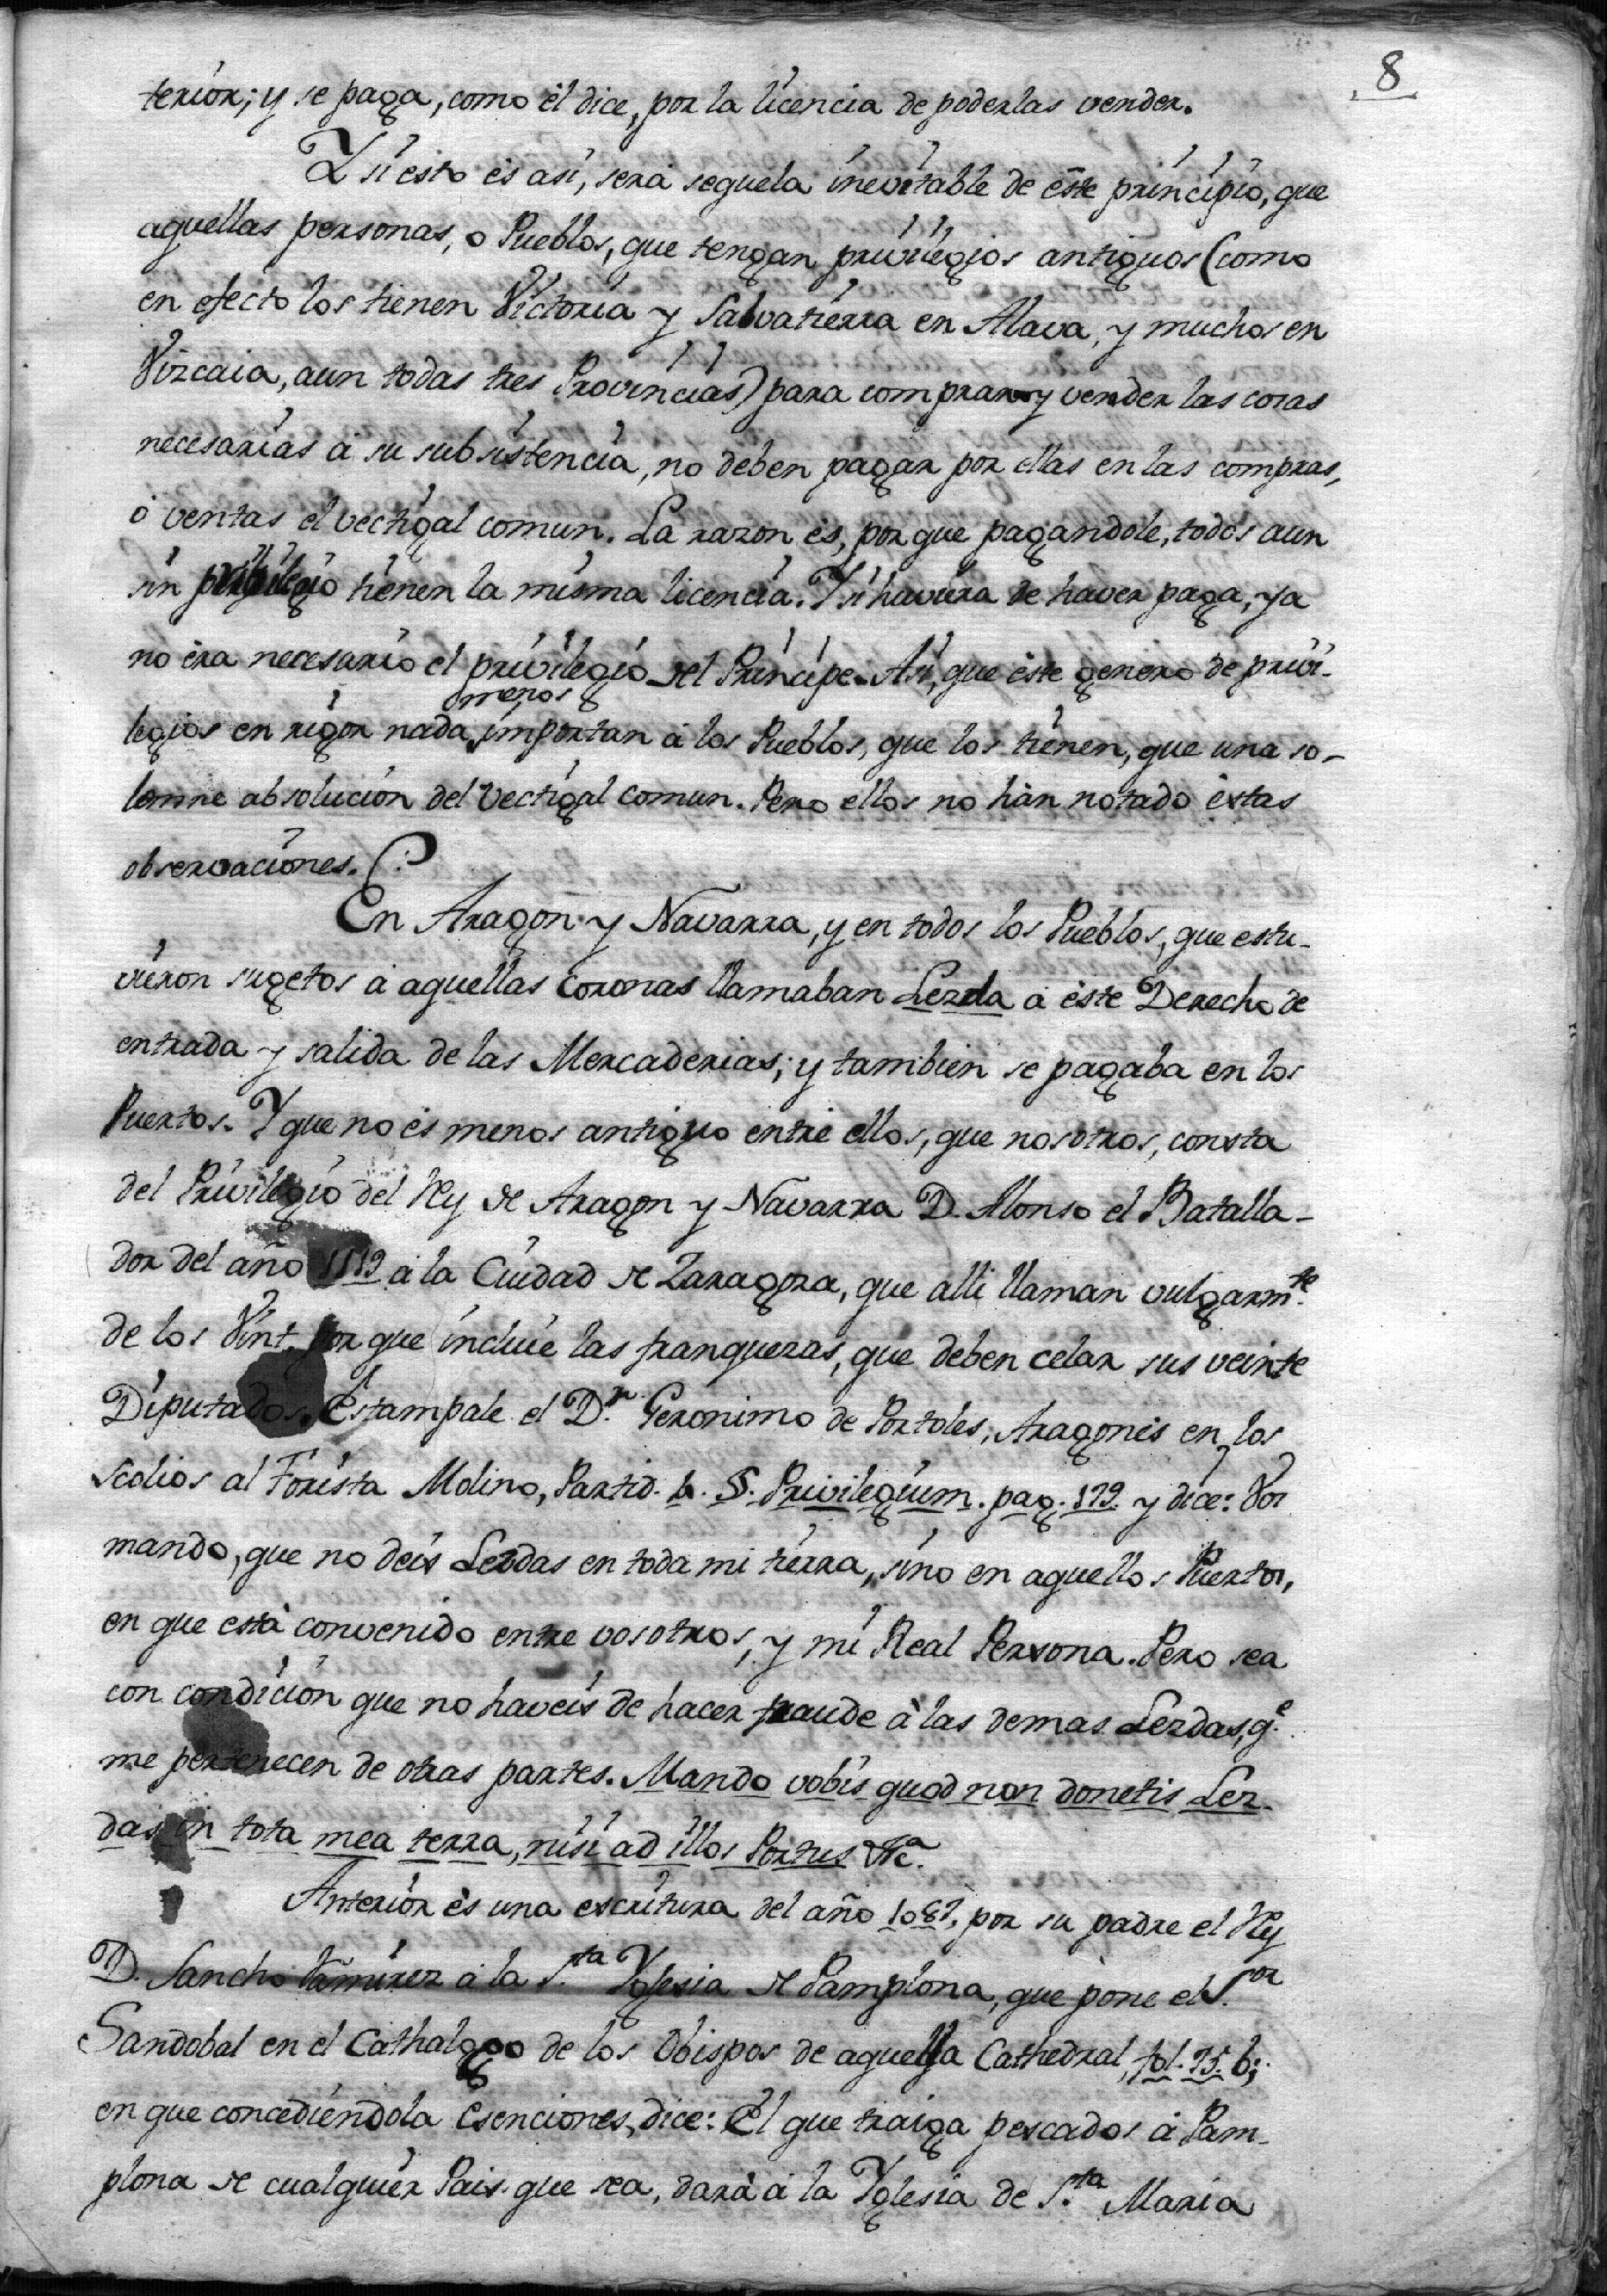 8
terior; y se paga, como él dice, por la licencia de poderlas vender.
Y si esto es asi, será sequela inevitable de éste principio, que
aquellas personas, o Pueblos, que tengan privilegios antiguos (como
en efecto los tienen Victoria y Salvatierra en Alava, y muchos en
Vizcaia, aun todas tres Provincias) para comprar y vender las cosas
necesarias á su subsistencia, no deben pagar por ellas en las compras,
ó ventas el vectigal comun. La razon és, por que pagandole, todos aun
sin privilegio tienen la misma licencia. Y si haviera de haver paga, ya
no éra necesario el privilegio del Principe. Asi, que éste genero de privi-
menos
legios en rigor nada importan á los Pueblos, que los tienen, que una so-
lemne absolucion del Vectigal comun. Pero ellos no hán notado éstas
observaciones.
En Aragon y Navarra, y en todos los Pueblos, que estu-
vieron sugetos á aquellas Coronas llamaban Lezda á éste Derecho de
entrada y salida de las Mercaderias; y tambien se pagaba en los
Puertos. Y que no és menos antiguo entre ellos, que nosotros, consta
del Privilegio del Rey de Aragon y Navarra D. Alonso el Batalla-
dor del año á la Ciudad de Zaragoza, que alli llaman vulgarm.te
de los Vint. por que incluie las franquezas, que deben celar sus veinte
Diputados. Estampale el D.r Geronimo de Portoles, Aragonés en los
Scolios al Forista Molino, Partid. §. Privilegium. pag. 179. y dice: Vos
mando, que no deis Lezdas en toda mi tierra, sino en aquellos Puertos,
en que está convenido entre vosotros, y mi Real Persona. Pero sea
con condicion que no haveis de hacer fraude á las demas Lezdas, q.e
me pertenecen de otras partes. Mando vobis quod non donetis Lez-
das in tota mea terra, nisi ad illos Portus &c.a
Anterior és una escritura del año por su padre el Rey
D. Sancho Ramirez á la S.ta Yglesia de Pamplona, que pone el S.or
Sandobal en el Cathalogo de los Obispos de aquella Cathedral, fol. 75. b;
en que concediendola esenciones, dice: El que traiga pescados á Pam-
plona de cualquier Pais que sea, dará á la Yglesia de S.ta Maria